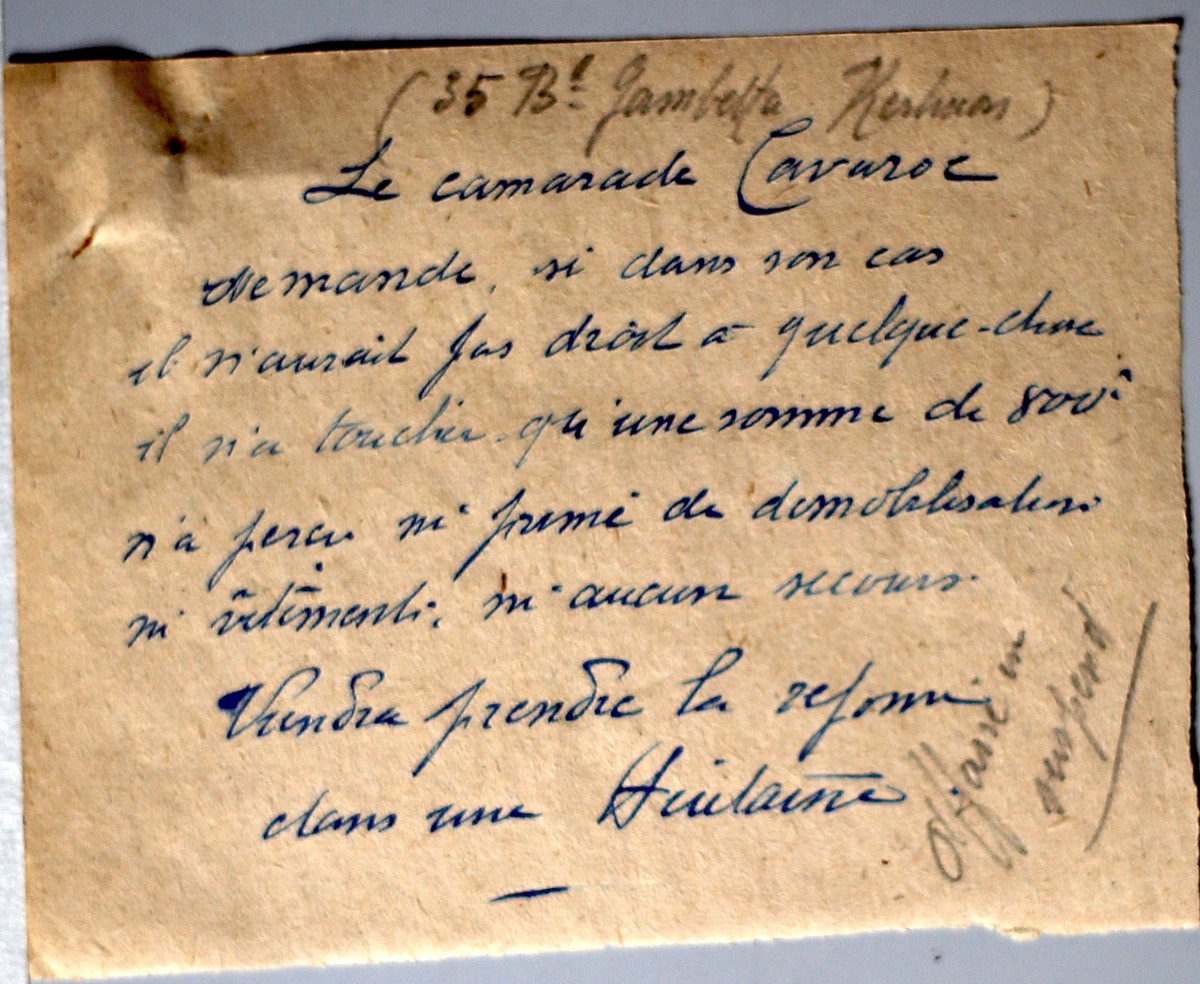 (35 Bd Gambetta Kerhuon)
Le camarade Cavaroc
demande, si dans son cas
il n'aurait pas droit à quelque-chose
il n'a toucher qu'une somme de 800f
n'a perçu ni prime de demobilisation
ni vêtements, ni aucun secours.
Viendra prendre la reponse
dans une huitaine
affaire en
suspend